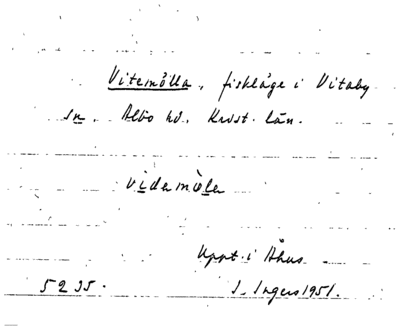 Vitemölla, fiskläge i Vitaby
sn, Albo hd., Krist. län.
videmöla
Uppt. i Åhus
5235.
I. Ingers 1951.